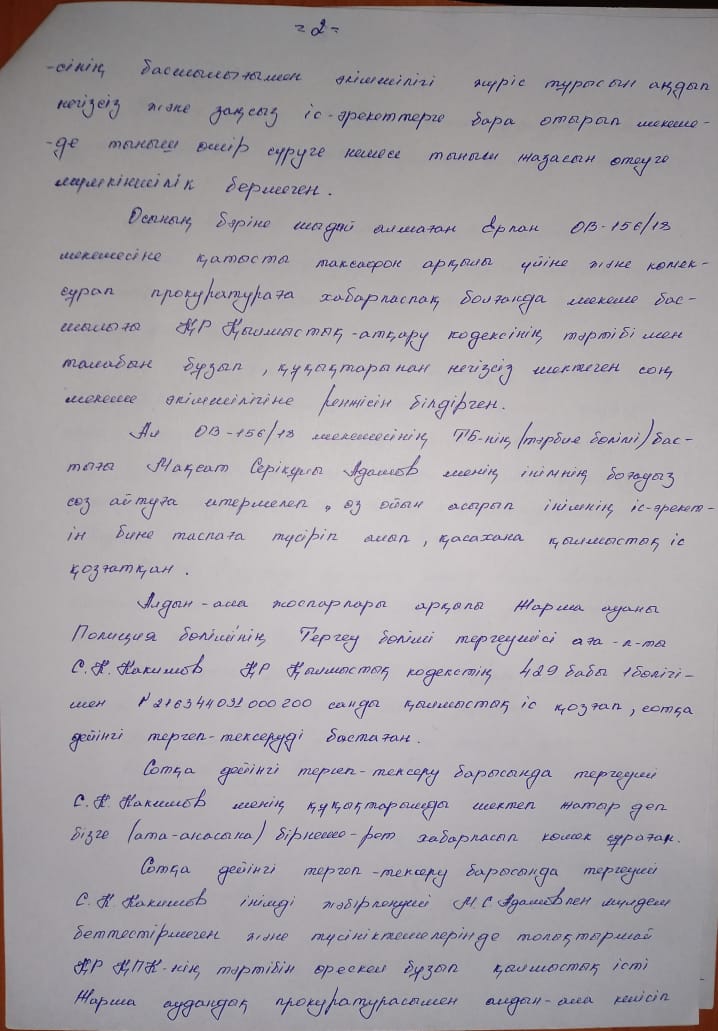 = 2 =
-сінің басшылығымен әкімшілігі жүріс тұрысын аңдып
негізсіз және заңсыз іс-әрекеттерге бара отырып мекеме-
-де тыныш өмір сүруге немесе тыныш жазасын өтеуге
мүмкіншілік бермеген.
Осының бәріне шыдай алмаған Ерлан ОВ-156/18
мекемесіне қатысты таксафон арқылы үйіне және көмек-
сұрап прокуратураға хабарласпақ болғанда мекеме бас-
шылығы ҚР Қылмыстық-атқару кодексінің тәртібі мен
талабын бұзып, құқықтарынан негізсіз шектеген соң
мекеме әкімшілігіне ренжісін білдірген.
Ал ОВ-156/18 мекемесінің ТБ-нің (тәрбие бөлімі) бас-
тығы Мақсат Серікұлы Адамов менің інімнің боғауыз
сөз айтуға итермелеп, өз ойын асырып інімнің іс-әрекет-
ін бине таспаға түсіріп алып, қасахана қылмыстық іс
қозғатқан.
Алдын-ала жоспарлары арқылы Жарма ауданы
Полиция бөлімінің Тергеу бөлімі тергеушісі аға-л-ты
С.К.Какимов ҚР Қылмыстық кодекстің 429 бабы 1бөлігі-
мен №216344031000200 санды қылмыстық іс қозғап, сотқа
дейінгі тергеп-тексеруді бастаған.
Сотқа дейінгі тергеп-тексеру барысында тергеуші
С.К.Какимов менің құқықтарымды шектеп жатыр деп
бізге (ата-анасына) бірнеше-рет хабарласып көмек сұраған.
Сотқа дейінгі тергеп-тексеру барысында тергеуші
С.К.Какимов інімді жәбірленуші М.С Адамовпен мүлдем
беттестірмеген және түсініктемелерінде толықтырмай
ҚР ҚПК-нің тәртібін өрескел бұзып қылмыстық істі
Жарма аудандық прокуратурасымен алдын-ала келісіп